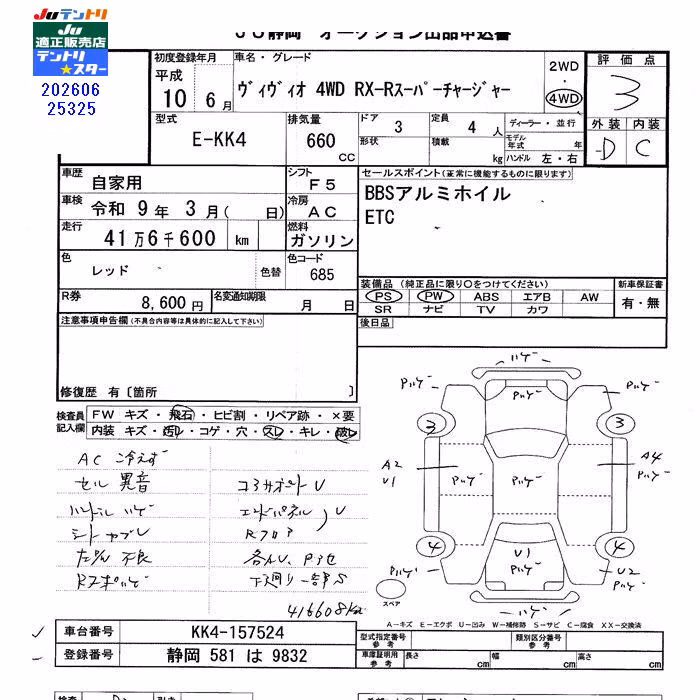 JUテントリ
JU
適正販売店
テントリ
★スター
202606
25325
JU静岡 オークション出品申込書
初度登録年月
平成
10 6月
車名・グレード
ヴィヴィオ 4WD RX-Rスーパーチャージャー
2WD
・
4WD
評価点
3
外装 内装
-D C
型式
E-KK4
排気量
660
CC
ドア
3
形状
定員
4 人
積載
kg
ディーラー・並行
モデル年式 年
ハンドル 左・右
車歴
自家用
シフト
F5
車検 令和 9年 3月( 日)
冷房
AC
走行
41万6千600 km
燃料
ガソリン
色
レッド
色替
色コード
685
R券
8,600円
名変通知期限
月 日
セールスポイント(正常に機能するものに限ります。)
BBSアルミホイル
ETC
装備品(純正品に限り○をつけてください)
PS PW ABS エアB AW
SR ナビ TV カワ
新車保証書
有・無
後日品
注意事項申告欄(不具合内容等は具体的に記入して下さい)
修復歴 有〔箇所 〕
検査員記入欄
FW キズ・飛石・ヒビ割・リペア跡・×要
内装 キズ・汚レ・コゲ・穴・スレ・キレ・破レ
AC 冷えず
セル 異音
ハンドル ハゲ
シートカブU
不良
コアサポートU
エンドパネル U
Rフロア
各AU、Pヨセ
下廻り一部S
416608km
ハゲ
Pハゲ
Pハゲ
Pハゲ
3
3
A2
U1
Pハゲ
Pハゲ
A4
Pハゲ
4
4
U1
Pハゲ
Pハゲ
U2
Pハゲ
ハゲ
スペア
A-キズ E-エクボ U-凹み W-補修跡 S-サビ C-腐食 XX-交換済
車台番号
KK4-157524
登録番号
静岡 581 は 9832
型式指定番号
参考
類別区分番号
参考
車庫証明用
参考
長さ
cm
幅
cm
高さ
cm